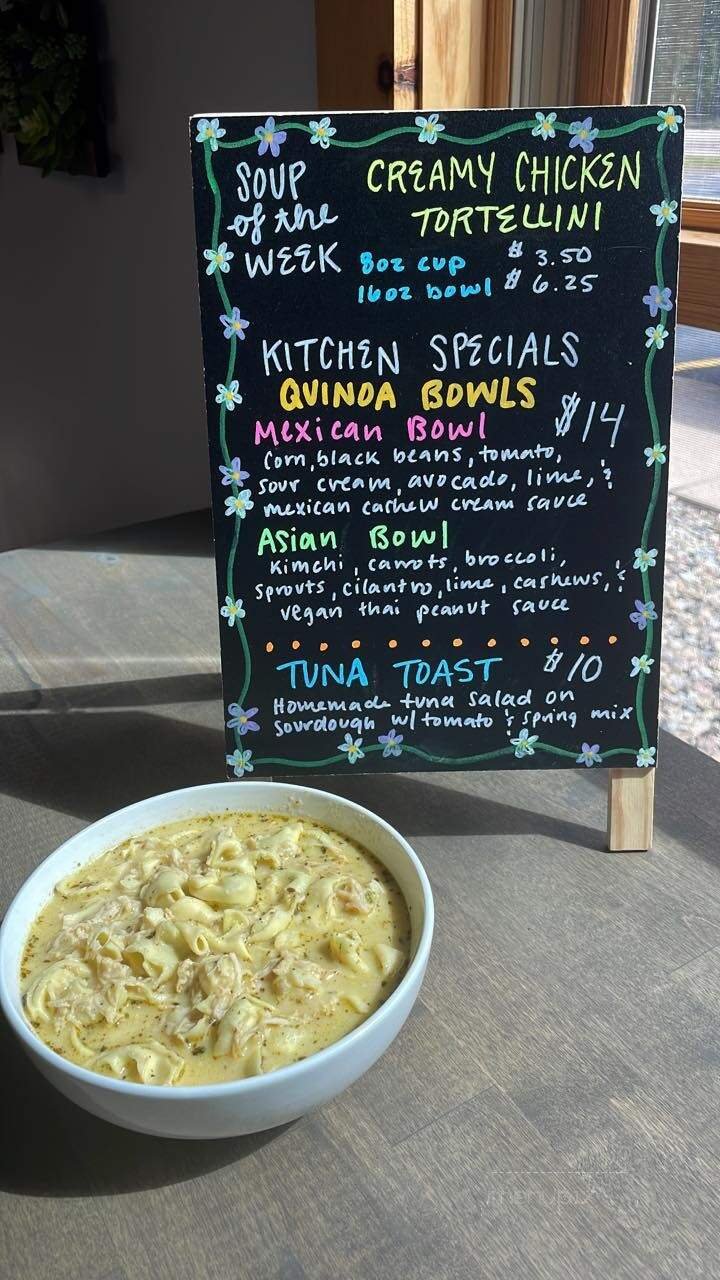 SOUP of the WEEK
CREAMY CHICKEN
TORTELLINI
8oz cup $ 3.50
16oz bowl $ 6.25
KITCHEN SPECIALS
QUINOA BOWLS
Mexican Bowl $14
Corn, black beans, tomato,
sour cream, avocado, lime, &
mexican cashew cream sauce
Asian Bowl
Kimchi, carrots, broccoli,
sprouts, cilantro, lime, cashews, &
vegan thai peanut sauce
TUNA TOAST $10
Homemade tuna salad on
sourdough w/ tomato & spring mix
menupix